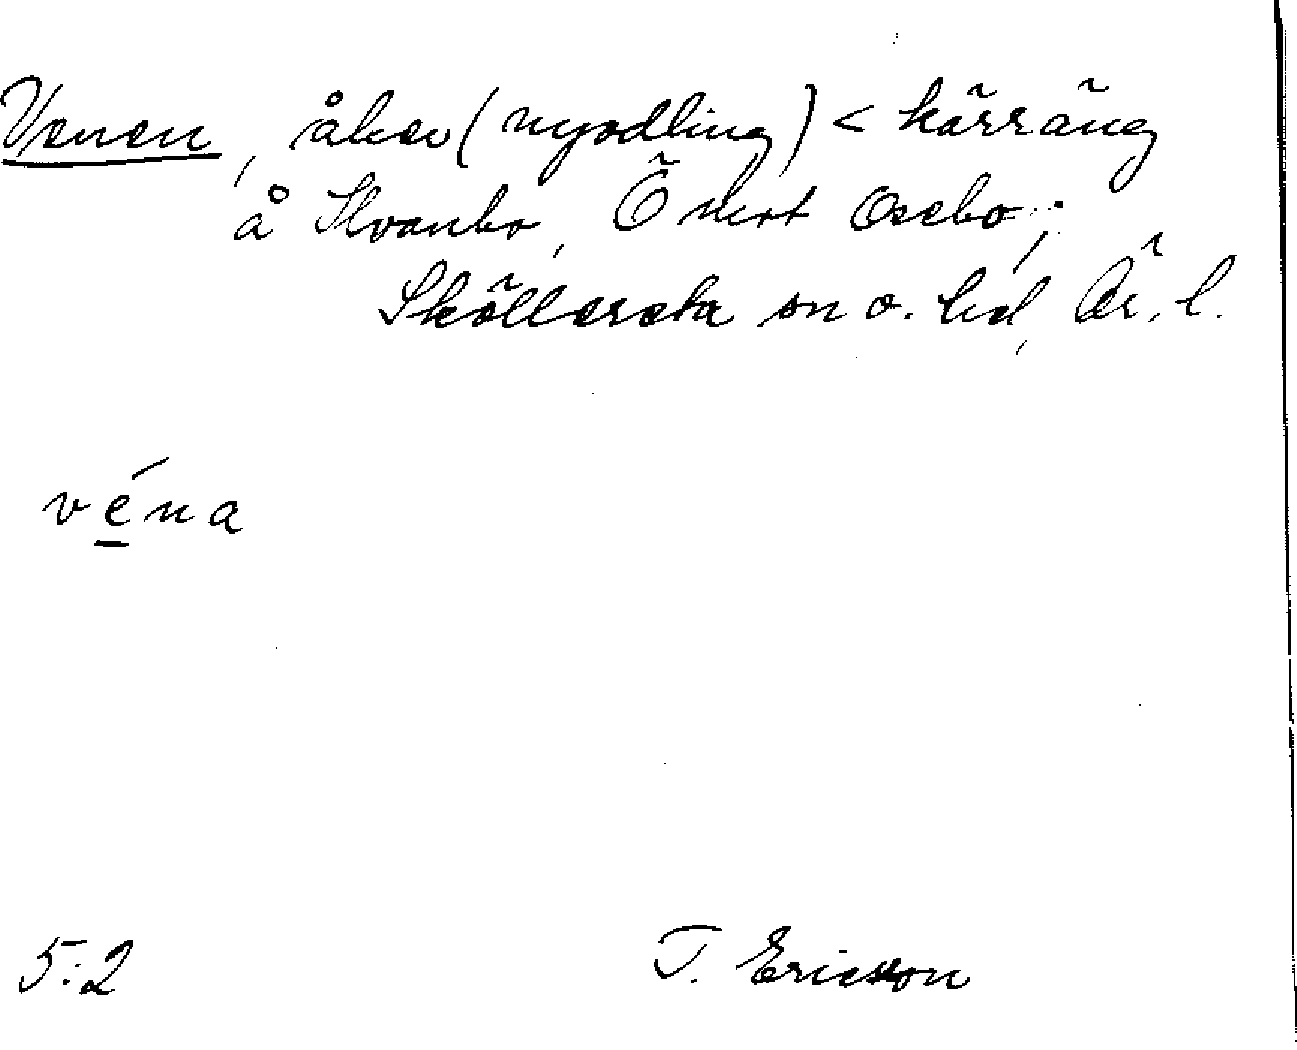 Venen, åker (nyodling) < kärräng
å Kvanbo, Ö
Sköllersta sn o. hd, Ör. l.
véna
5:2
T. Ericsson